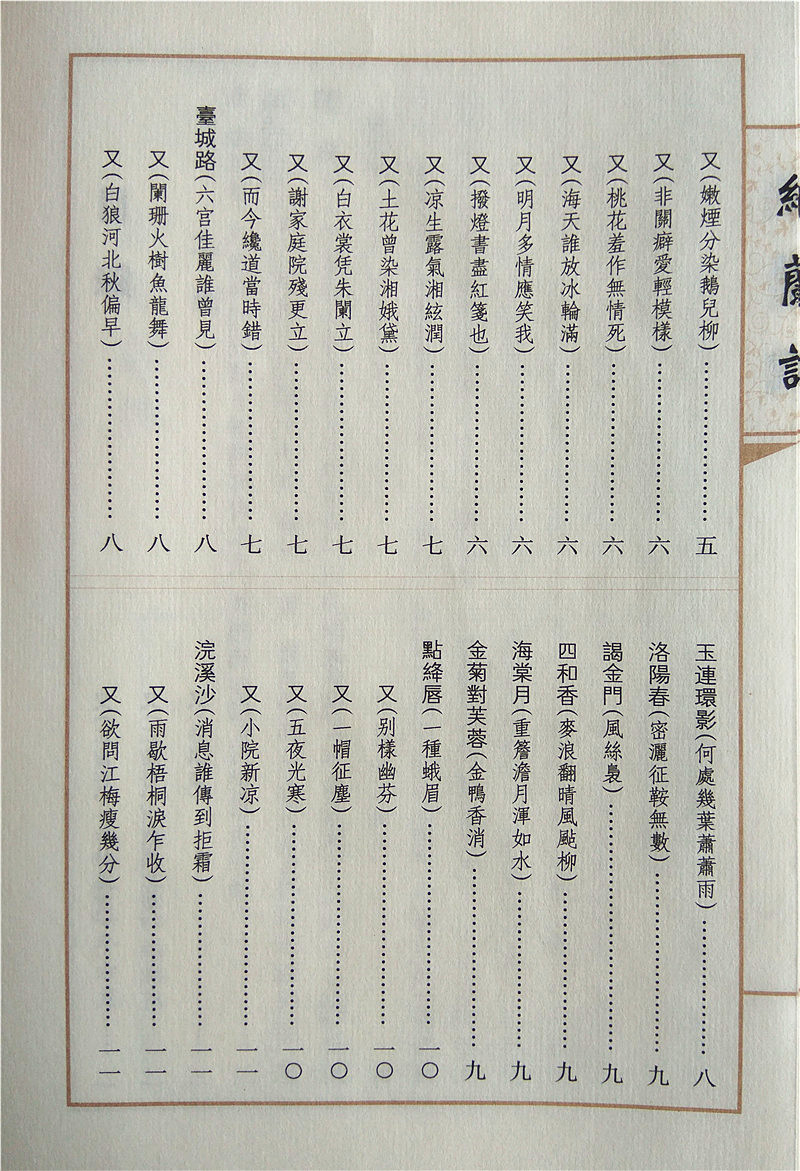 又(嫩煙分染鵝兒柳)………五
又(非關癖愛輕模樣)………六
又(桃花羞作無情死)………六
又(海天誰放冰輪滿)………六
又(明月多情應笑我)………六
又(撥燈書盡紅箋也)………六
又(凉生露氣湘絃潤)………七
又(土花曾染湘娥黛)………七
又(白衣裳凭朱闌立)………七
又(謝家庭院殘更立)………七
又(而今纔道當時錯)………七
臺城路(六宫佳麗誰曾見)………八
又(闌珊火樹魚龍舞)………八
又(白狼河北秋偏早)………八
玉連環影(何處幾葉蕭蕭雨)………八
洛陽春(密灑征鞍無數)………九
謁金門(風絲裊)………九
四和香(麥浪翻晴風颭柳)………九
海棠月(重簷澹月渾如水)………九
金菊對芙蓉(金鴨香消)………九
點絳唇(一種蛾眉)………一〇
又(别樣幽芬)………一〇
又(一帽征塵)………一〇
又(五夜光寒)………一〇
又(小院新凉)………一一
浣溪沙(消息誰傳到拒霜)………一一
又(雨歇梧桐淚乍收)………一一
又(欲問江梅瘦幾分)………一一